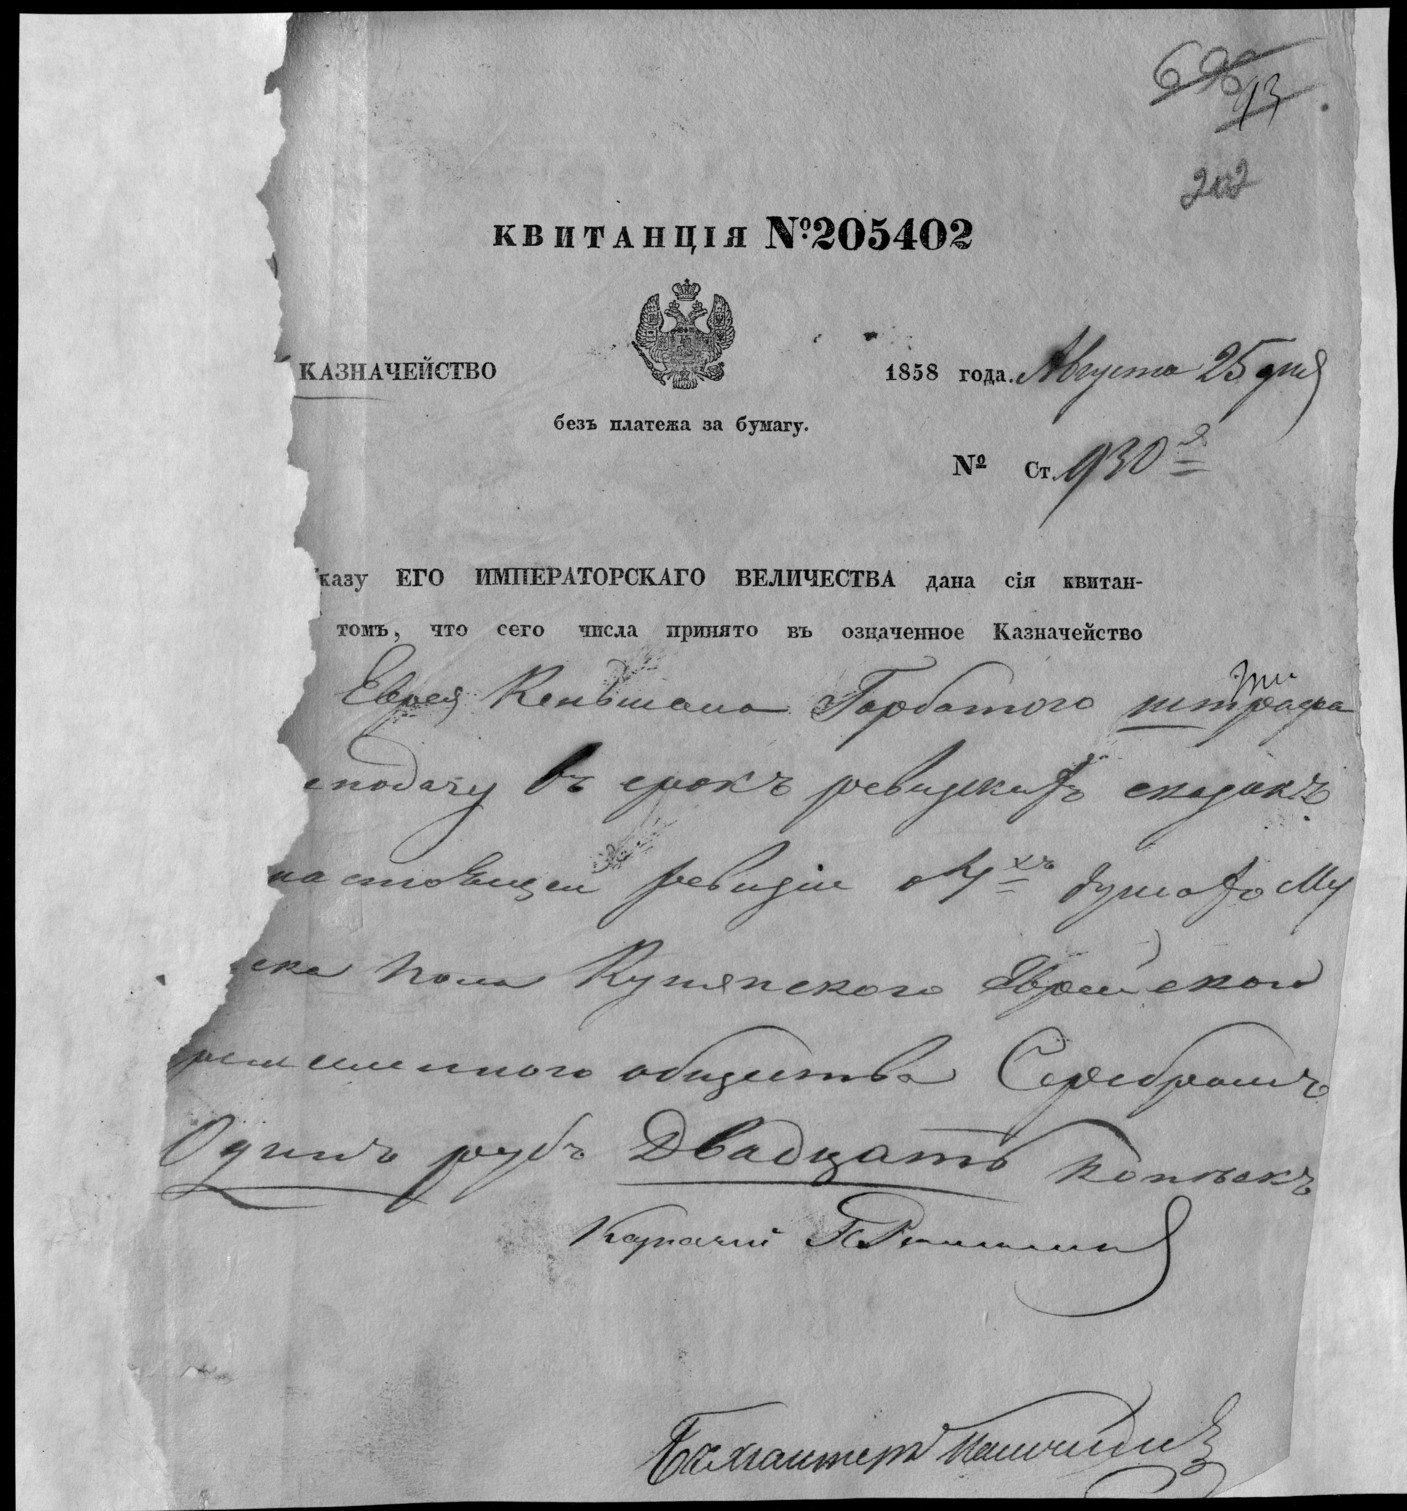 93
202
КВИТАНЦІЯ №205402
КАЗНАЧЕЙСТВО
1858 года. Августа 25 дня
безъ платежа за бумагу.
№ Ст. 930
казу ЕГО ИМПЕРАТОРСКАГО ВЕЛИЧЕСТВА дана сія квитан-
томъ, что сего числа принято въ означенное Казначейство
Еврея Горбатого штрафа
еподачу въ срокъ ревизскихъ сказокъ
настоящей ревизіи о 4хъ душахъ Му
ска пола Еврейскаго
общества Серебромъ
Одинъ руб Двадцать копѣекъ
Казначей
Бухгалтеръ